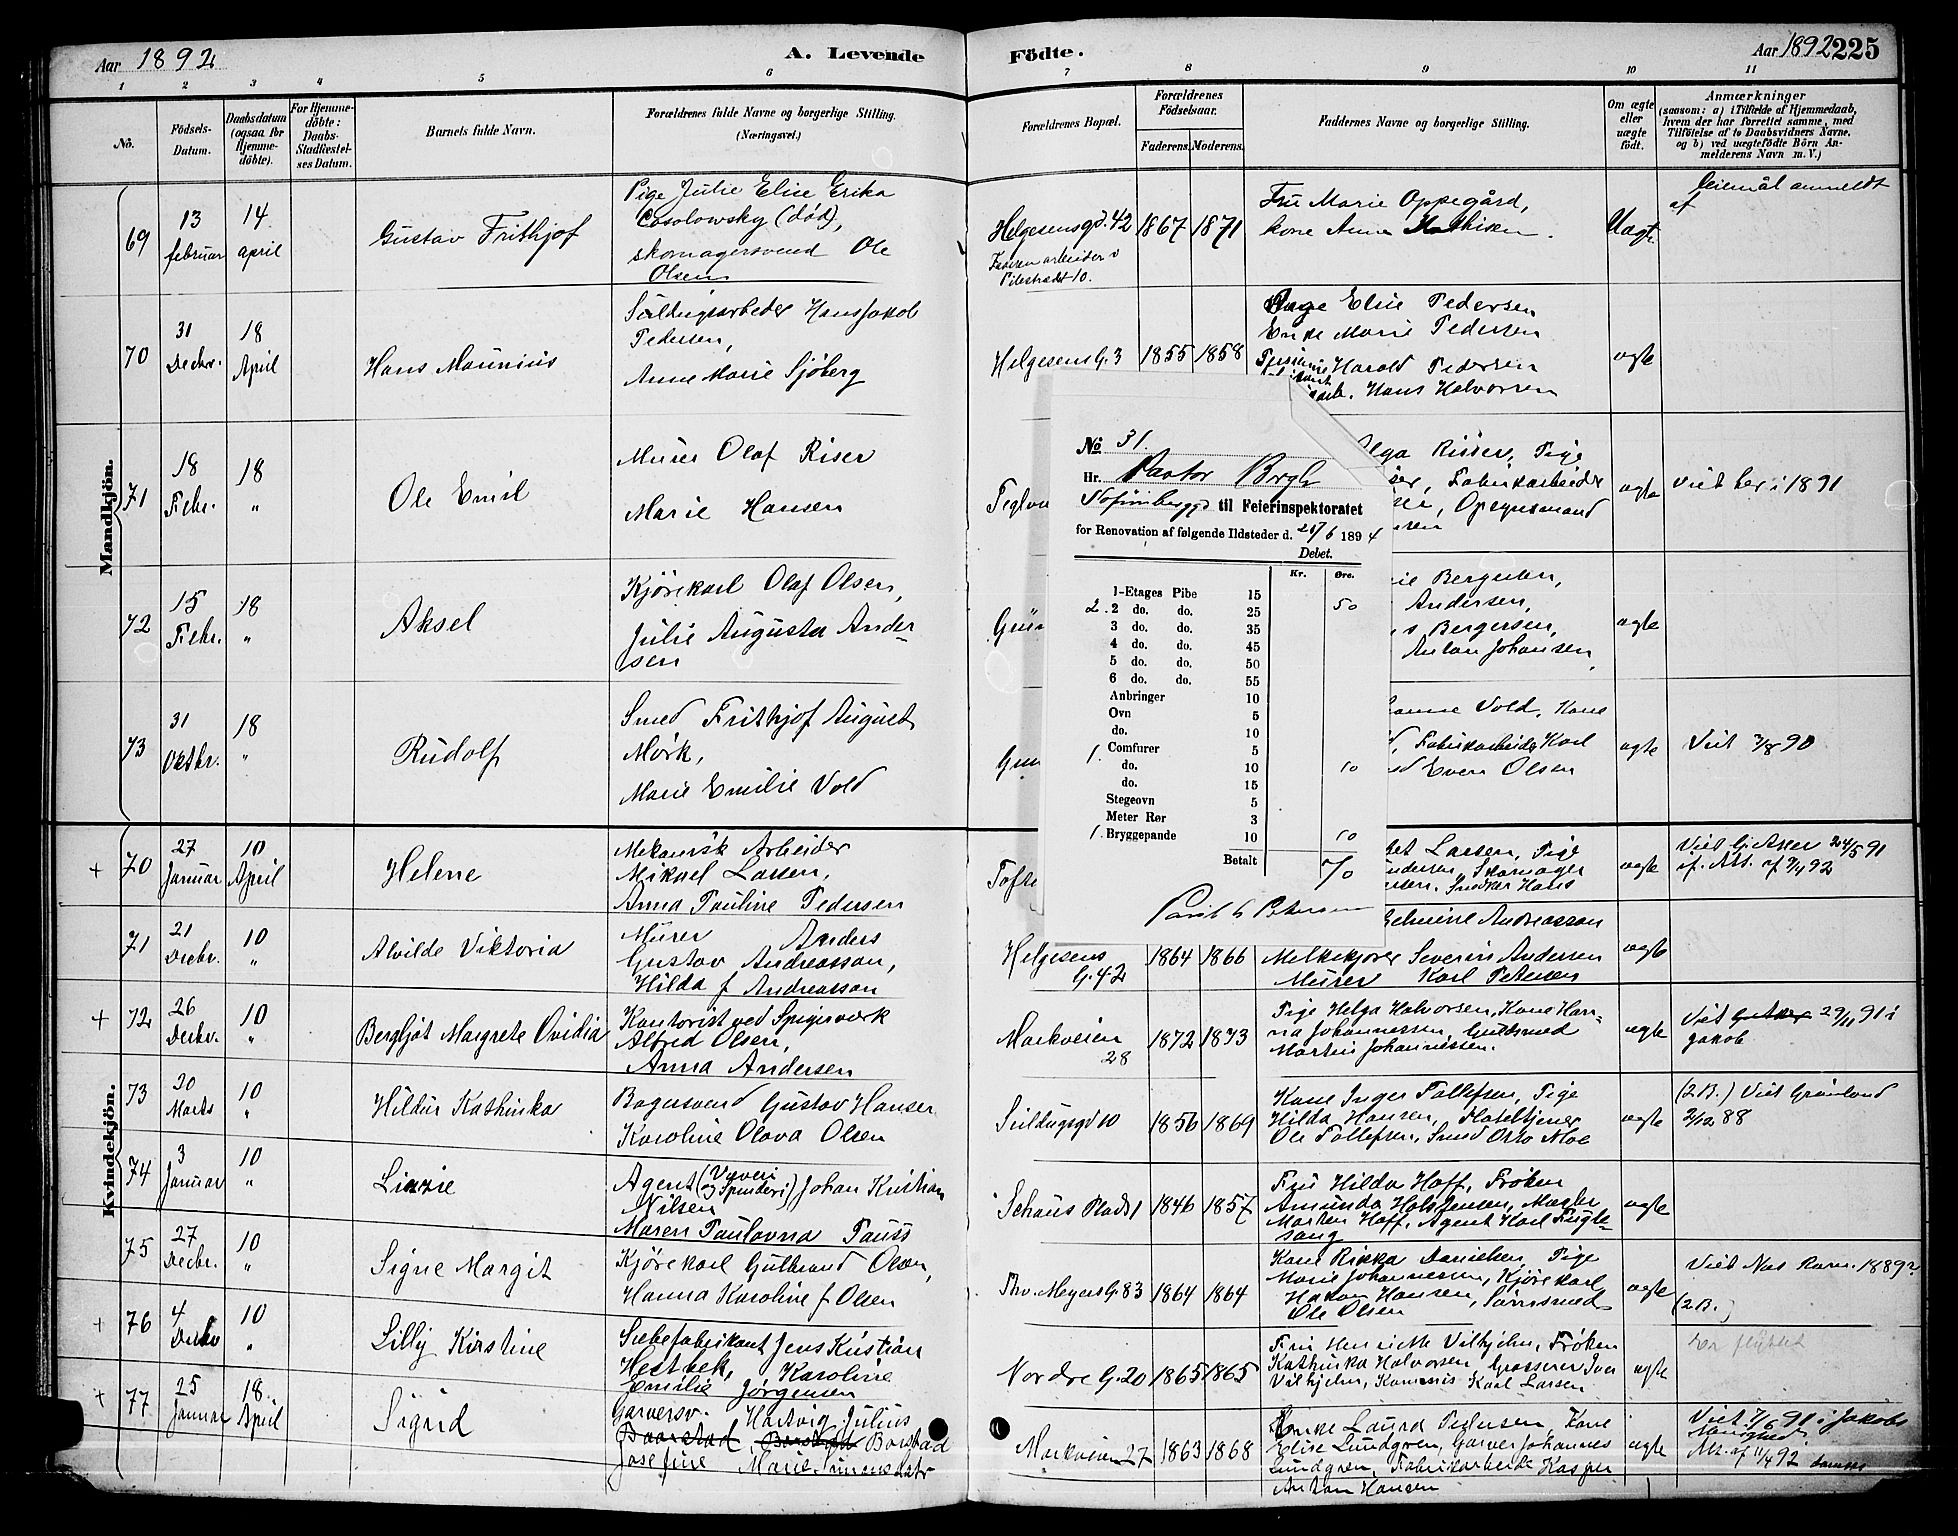 Aar 1892
A. Levende
Födte.
Aar 1892 225
1 2 3 4 5 6 7 8 9 10 11
No.
Födsels-Datum.
Daabsdatum (ogsaa for Hjemme-döbte).
For Hjemme-döbte: Daabs-Stadfæstel-ses Datum.
Barnets fulde Navn.
Forældrenes fulde Navne og borgerlige Stilling. (Næringsvei.)
Forældrenes Bopæl.
Forældrenes Födselsaar.
Faderens. Moderens.
Faddernes Navne og borgerlige Stilling.
Om ægte eller uægte födt.
Anmærkninger
(saasom: a) i Tilfælde af Hjemmedaab,
hvem der har forrettet samme, med
Tilföielse af to Daabsvidners Navne,
og b) ved uægtefödte Börn An-
melderens Navn m. V.)
Mandkjön.
69
13 februar
14 april
Gustav Frithjof
Pige Julie Elise Erika
Cosolowsky (död),
skomagersvend Ole
Olsen
Helgesensgd. 42
Faderen arbeider i
Pilestrædet 10.
1867 1871
Fru Marie Oppegård,
kone Anna Mathisen.
Uægte
Leiemål anmeldt
af
70
31 Decbr.
18 April
Hans Mauritius
Seildugsarbeder Hans Jakob
Pedersen,
Anne Marie Sjöberg
Helgesens G. 3
1855 1858
Pige Elise Pedersen
Enke Marie Pedersen
Harald Pedersen
Hans Halvorsen
ægte
71
18 Febr.
18 "
Ole Emil
Murer Olaf Riser
Marie Hansen
Teglv
lga Risser, Pige
ser, Fabrikarbeider
Opsynsmand
sen
ægte
Viet her i 1891
72
15 Febr.
18 "
Aksel
Kjörekarl Olaf Olsen,
Julie Augusta Ander-
sen
Grün
ie Bergersen,
Andersen,
s Bergersen,
Anton Johansen,
ægte
73
31 Oktbr.
18 "
Rudolf
Smed Frithjof August
Mörk,
Marie Emilie Vold
Grün
anna Vold, Kone
Fabrikarbeider Karl
Even Olsen
ægte
Viet 3/8 90
No 31.
Hr. Pastor
til Feierinspektoratet
for Renovation af følgende Ildsteder d. 26/6 1894
Debet.
Kr. Øre.
1-Etages Pibe 15
2. 2 do. do. 25 50
3 do. do. 35
4 do. do. 45
5 do. do. 50
6 do. do. 55
Anbringer 10
Ovn 5
do. 10
1. Comfurer 5
do. 10 10
do. 15
Stegeovn 5
Meter Rør 3
1. Bryggepande 10 10
Betalt 70
Petersen
Kvindekjön.
+ 70
27 Januar
10 April
Helene
Mekanisk Arbeider
Mikael Larsen,
Anna Pauline Pedersen
Tofte
Larsen, Pige
Andersen, Skomager
sen, Snedker Hans
ægte
Viet i Asker 24/5 91
if. Att. af 7/4 92
71
21 Decbr.
10 "
Alvilde Viktoria
Murer Anders
Gustav Andreasson,
Hilda f Andreasson
Helgesens
G. 42
1864 1866
Andreasson
Melkekjører Severin Andersen
Murer Karl Petersen
ægte
+ 72
26 Decbr.
10 "
Bergljot Margrete Ovidia
Kontorist ved Spigerværk
Alfred Olsen,
Anna Andersen
Markveien
28
1872 1873
Pige Helga Halvorsen, Kone Han-
na Johannessen, Guldsmed
Martin Johannessen.
ægte
Viet 29/11 91 i
Jakob
73
20 Marts
10 "
Hildur Kathinka
Bagersvend Gustav Hansen
Karoline Olava Olsen
Seildugsgd 10
1856 1869
Kone Inger Tollefsen, Pige
Hilda Hansen, Hoteltjener
Ole Tollefsen, Smed Otto Moe
ægte
(2 B.) Viet Grönland
2/12 88
74
3 Januar
10 "
Linie
Agent (Væveri
og Spinderi) Johan Kristian
Nilsen
Maren Paulovna Pauss
Schous Plads 1
1846 1857
Fru Hilda Hoff, Fröken
Amunda Holst Jensen, Mægler
Morten Hoff, Agent Karl Fugle-
sang
ægte
75
27 Decbr.
10 "
Signe Margit
Kjörekarl Gulbrand Olsen,
Hanna Karoline f Olsen
Thv. Meyers G. 83
1864 1864
Kone Rikka Danielsen, Pige
Marie Johannessen, Kjörekarl
Håkon Hansen,
Ole Olsen
ægte
Viet Nas Rom. 1889?
(2 B.)
+ 76
4 Decbr
10 "
Lilly Kirstine
Sæbefabrikant Jens Kristian
Hestbek, Karoline
Emilie Jørgensen
Nordre G. 20
1865 1865
Fru Henriette Vilhjelm, Fröken
Kathinka Halvorsen, Grosserer Iver
Vilhjelm, Kommis Karl Larsen
ægte
Er flyttet
+ 77
25 Januar
18. April
Sigrid
Garversv. Hartvig Julius
Baarstad, Borstad
Josefine Marie Simensdatr
Markveien 27
1863 1868
Enke Laura Pedersen, Kone
Elise Lundgren, Garver Johannes
Lundgren, Fabrikarbeide Kasper
Anton Hansen
ægte
Viet 7/6 91 i Jakobs
Menighed
Att. af 11/4 92